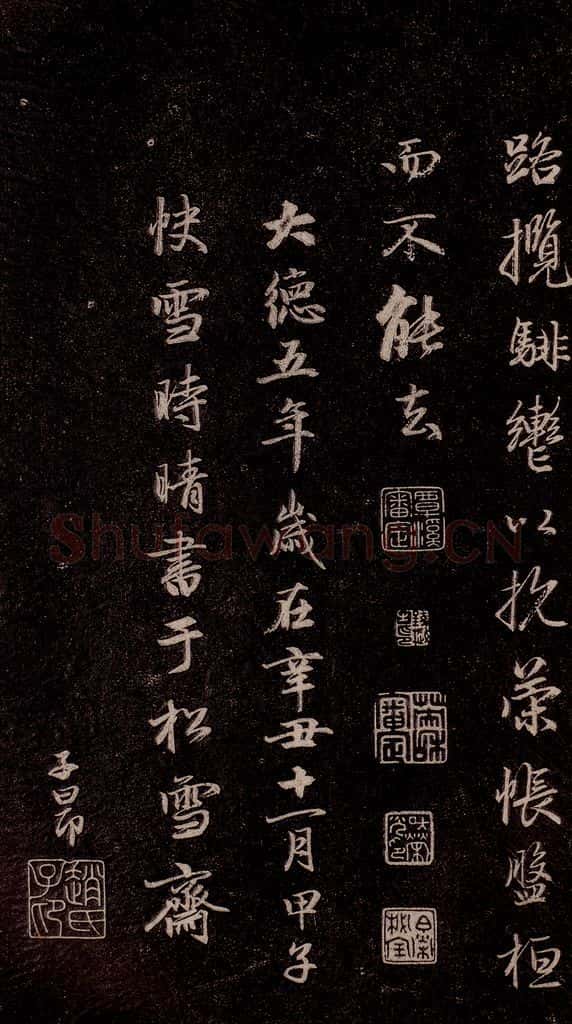 路攬騑轡以抗策悵盤桓
而不能去
大德五年歲在辛丑十一月甲子
快雪時晴書于松雪齋
子昂
趙氏子印
覃溪審定
Shufawang.CN